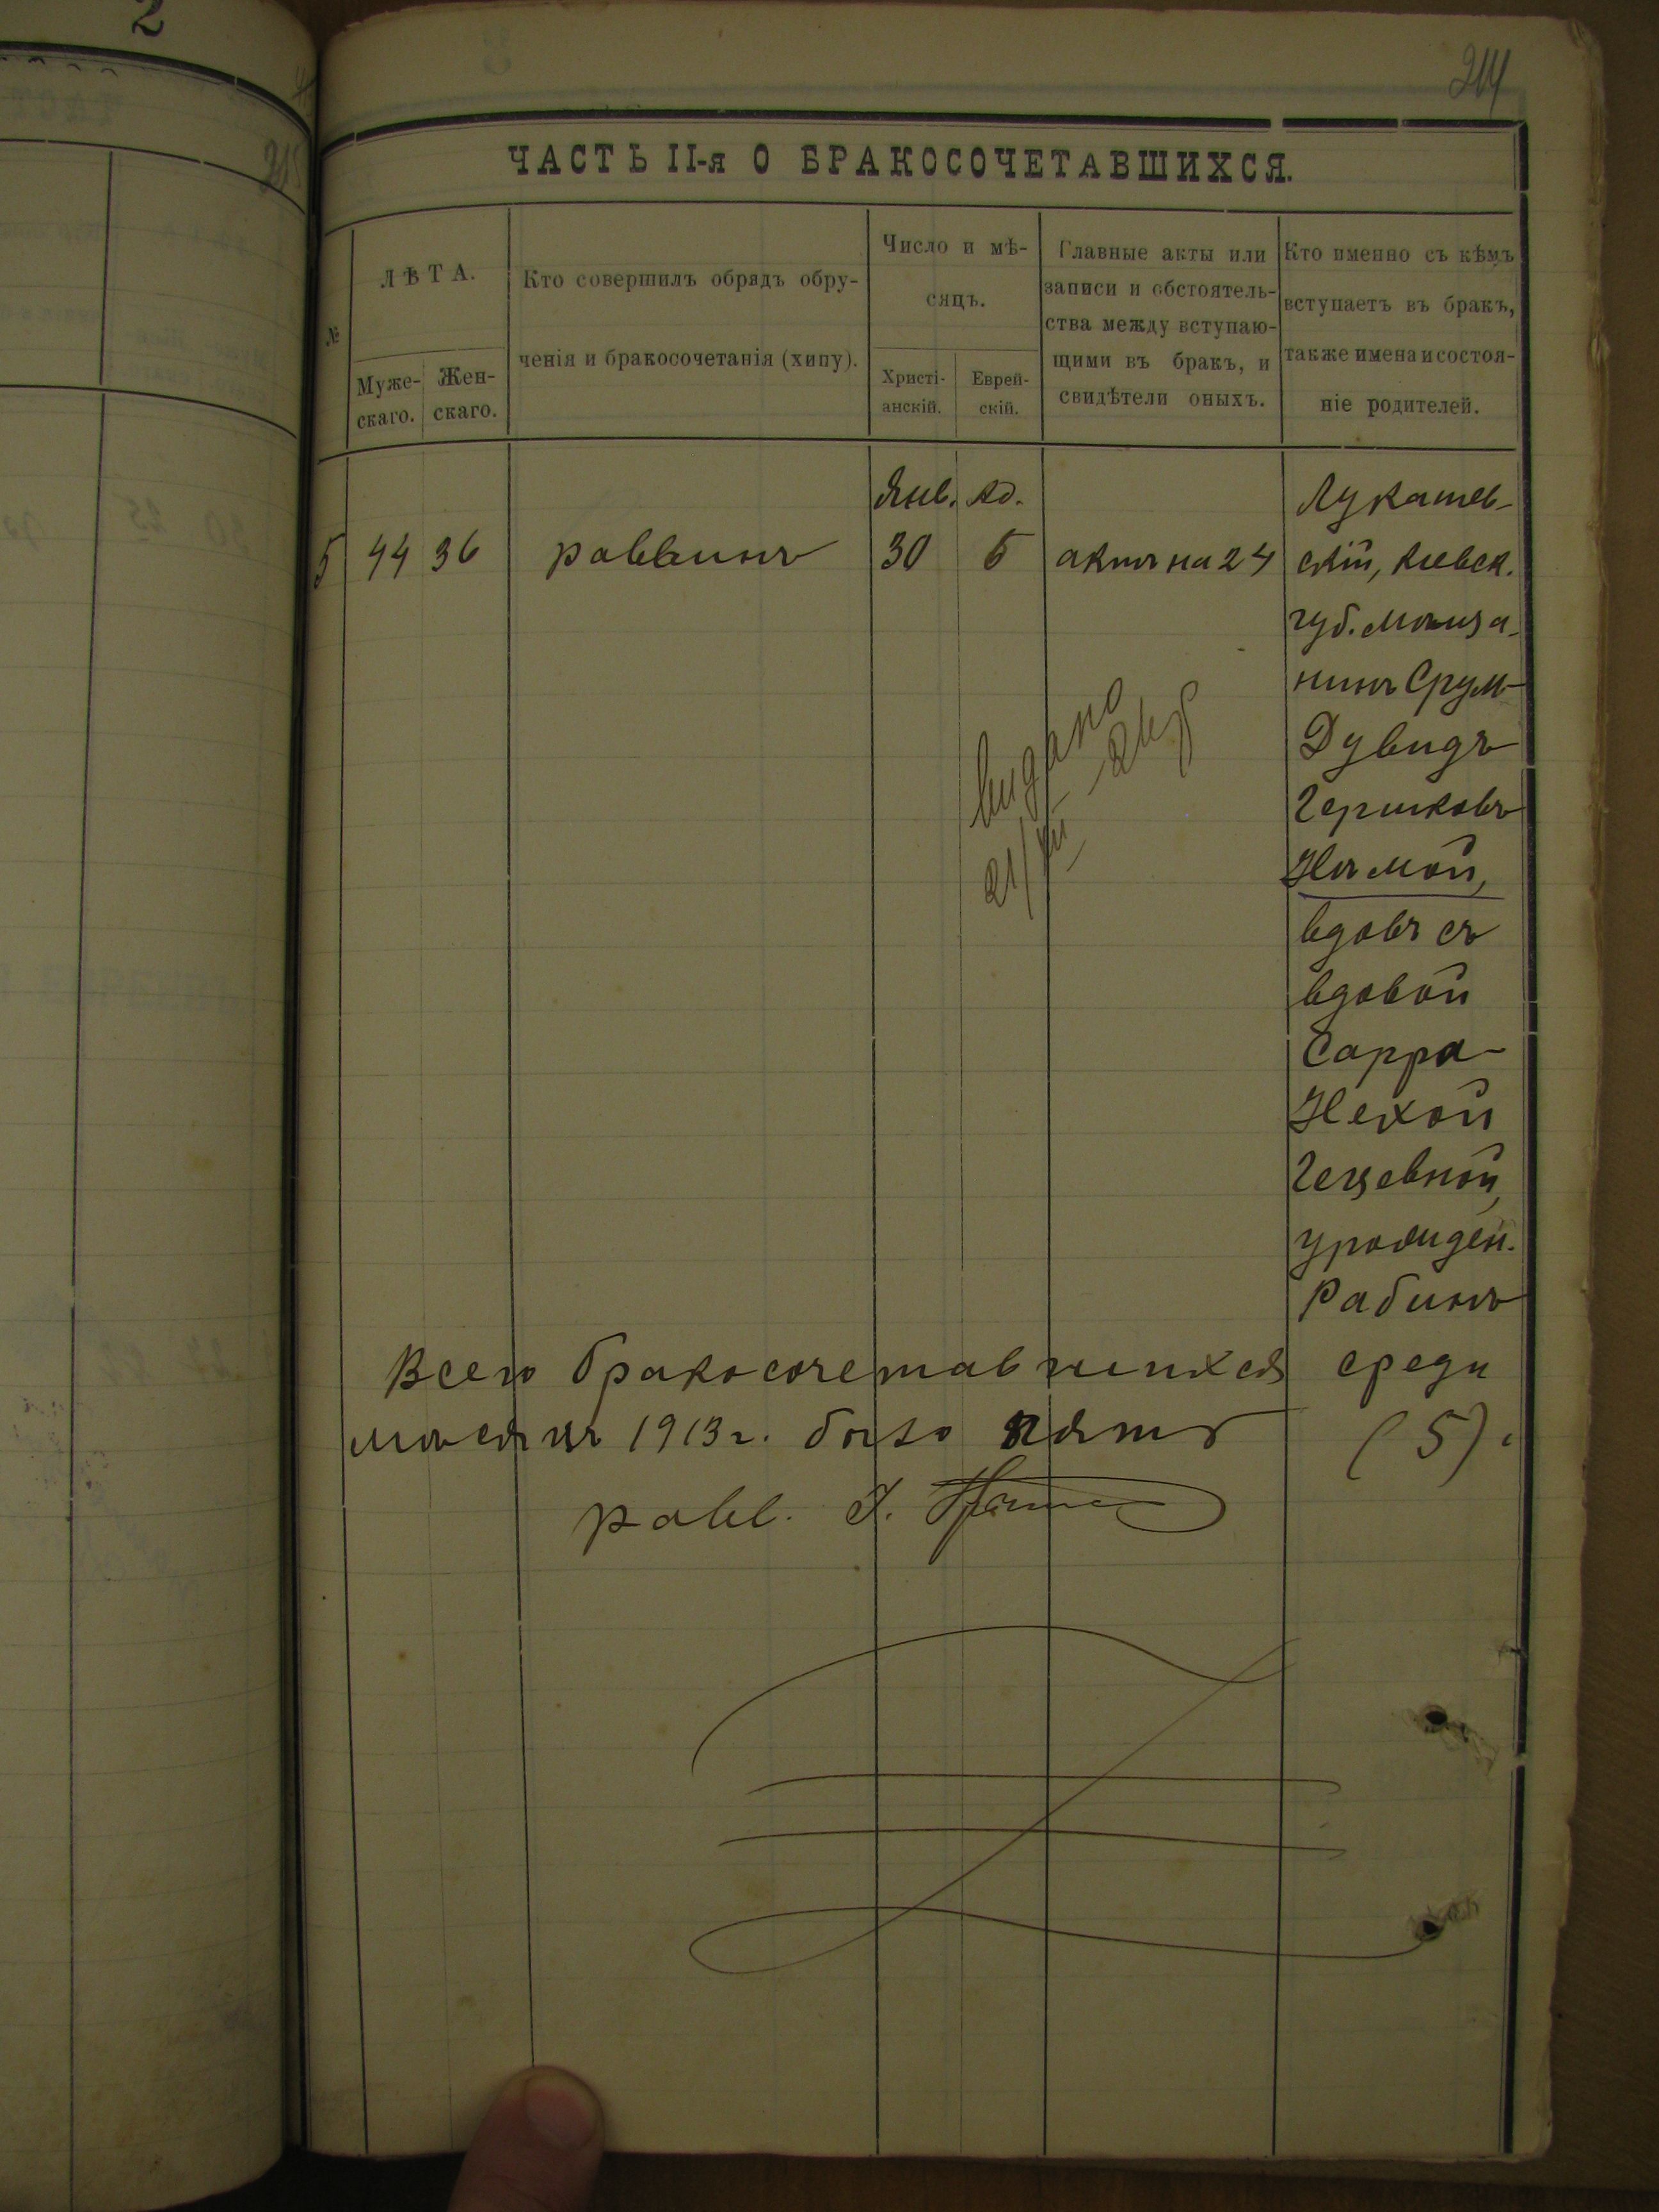 2
214
ЧАСТЬ II-я О БРАКОСОЧЕТАВШИХСЯ.
№
ЛѢТА.
Муже-
скаго.
Жен-
скаго.
Кто совершилъ обрядъ обру-
ченія и бракосочетанія (хипу).
Число и мѣ-
сяцъ.
Христі-
анскій.
Еврей-
скій.
Главные акты или
записи и обстоятель-
ства между вступаю-
щими въ бракъ, и
свидѣтели оныхъ.
Кто именно съ кѣмъ
вступаетъ въ бракъ,
также имена и состоя-
ніе родителей.
5
44
36
раввинъ
Янв.
30
Ад.
5
актъ на 24
Лукашев-
скій, Кіевск.
губ. мѣща-
нинъ Срул-
Дувидъ
Гершковъ
Нѣмой,
вдовъ съ
вдовой
Сарра-
Нехой
Гецевной,
урожден.
Рабинъ
видано
21/VII
Всего бракосочетавшихся
среди
мѣсяцъ 1913 г. было пять
(5).
равв.